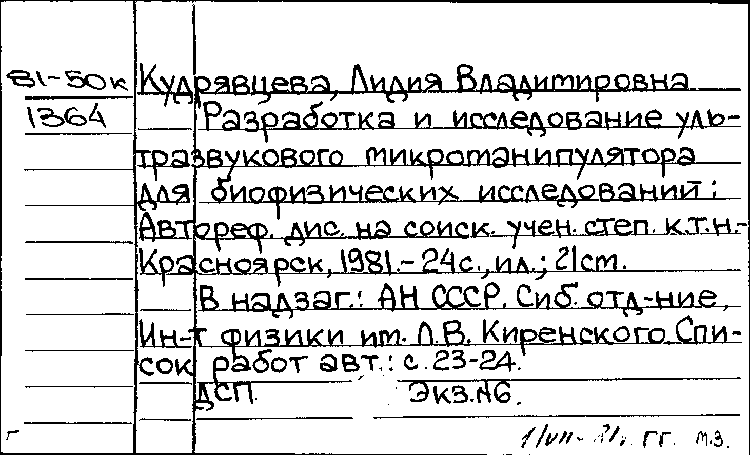 81-50к Кудрявцева, Лидия Владимировна
1364 Разработка и исследование уль-
тразвукового микроманипулятора
для биофизических исследований:
Автореф. дис. на соиск. учен. степ. к.т.н.-
Красноярск, 1981.-24с., ил.; 21см.
В надзаг.: АН СССР. Сиб. отд-ние,
Ин-т физики им. Л.В. Киренского. Спи-
сок работ авт.: с. 23-24.
ДСП. Экз.№6.
г гг. м.з.